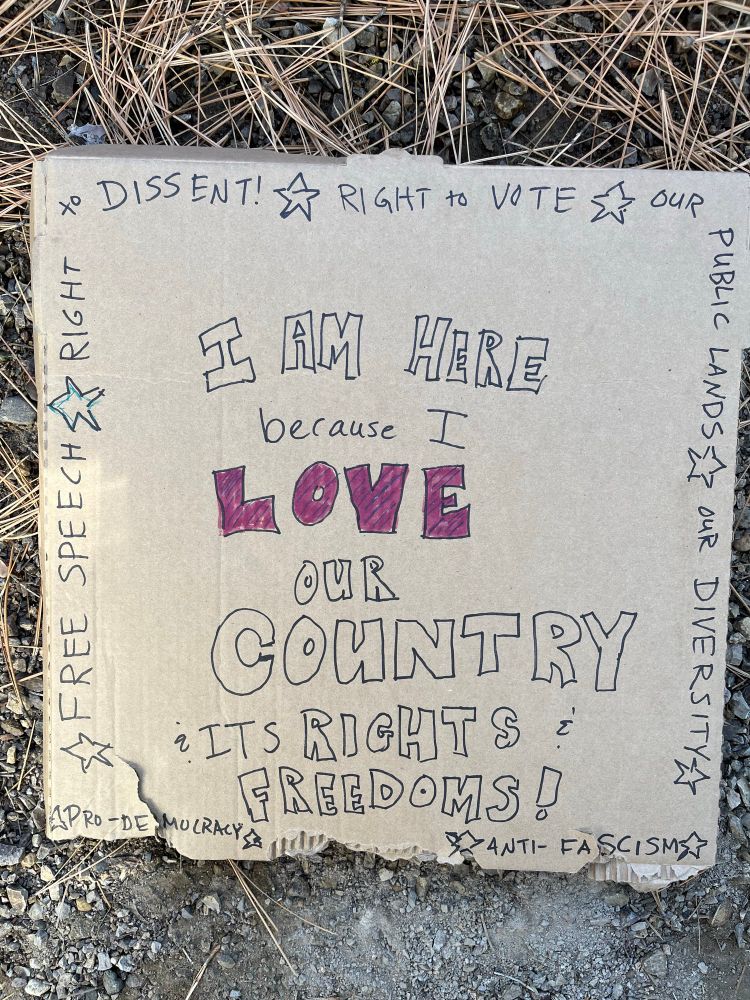 to DISSENT! ☆ RIGHT to VOTE ☆ OUR
PUBLIC LANDS ☆ OUR DIVERSITY ☆
I AM HERE
because I
LOVE
OUR
COUNTRY
& ITS RIGHTS &
FREEDOMS!
☆ FREE SPEECH ☆ RIGHT
☆ PRO-DEMOCRACY ☆
☆ ANTI-FASCISM ☆